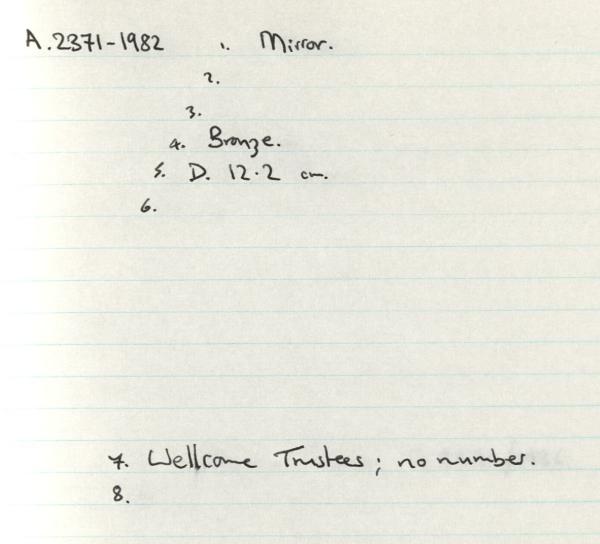 A.2371-1982 1. Mirror.
2.
3.
4. Bronze.
5. D. 12.2 cm.
6.
7. Wellcome Trustees; no number.
8.